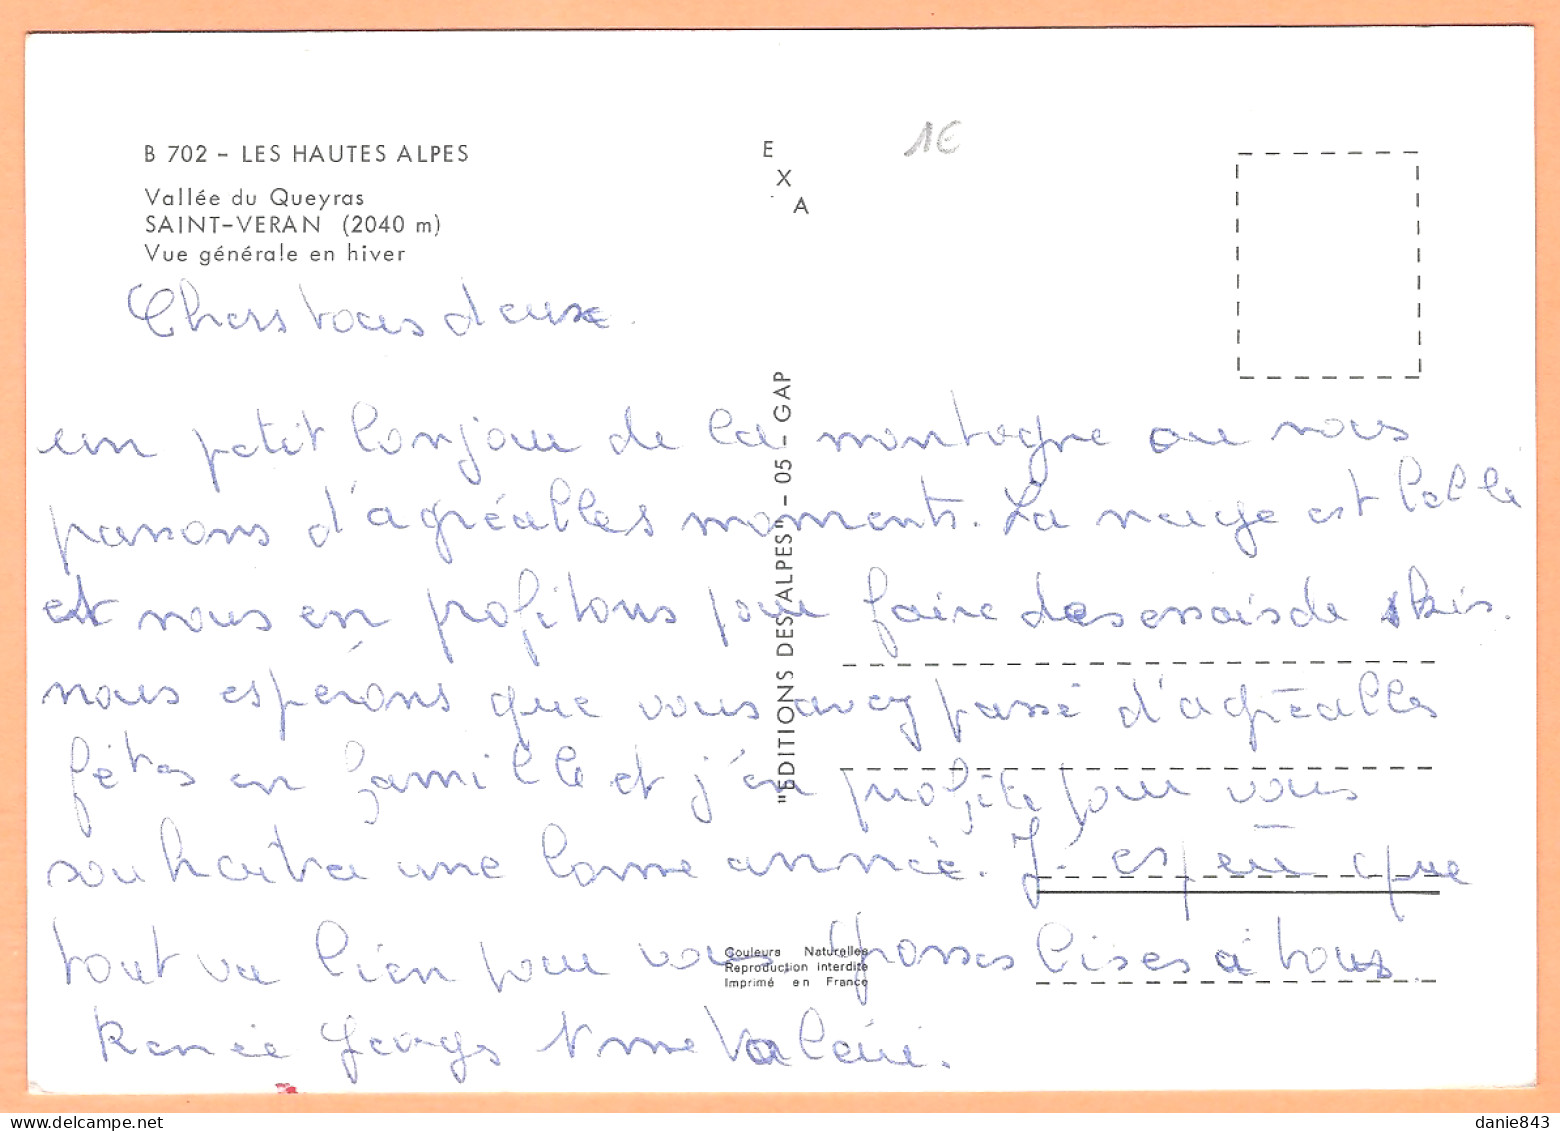 B 702 - LES HAUTES ALPES
Vallée du Queyras
SAINT-VERAN (2040 m)
Vue générale en hiver
E
X
A
1€
"EDITIONS DES ALPES" - 05 - GAP
Chers tous deux.
un petit bonjour de la montagne ou nous
passons d'agréables moments. La neige est belle
et nous en profitons pour faire des essais de skis.
nous espérons que vous avez passé d'agréables
fêtes en famille et j'en profite pour vous
souhaiter une bonne année. J'espère que
tout va bien pour vous. Grosses bises à tous.
Renée Georges Valérie.
Couleurs Naturelles
Reproduction interdite
Imprimé en France
danie843